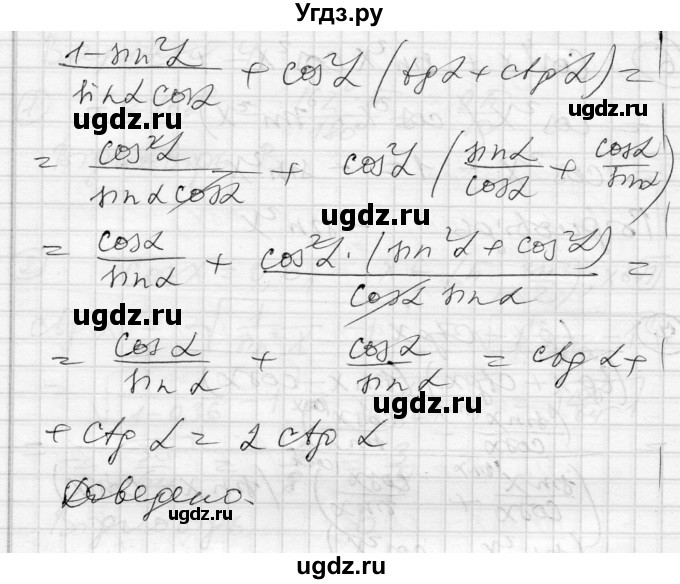 Угдз.ру
(1-sin²α)/(sinα cosα) + cos²α (tgα + ctgα) =
ugdz.ru ugdz.ru
= cos²α/(sinα cosα) + cos²α (sinα/cosα + cosα/sinα)
ugdz.ru
= cosα/sinα + cos²α·(sin²α + cos²α)/(cosα sinα) =
ugdz.ru
= cosα/sinα + cosα/sinα = ctgα +
ugdz.ru
+ ctg α = 2 ctg α
Доведено.
ugdz.ru
ugdz.ru